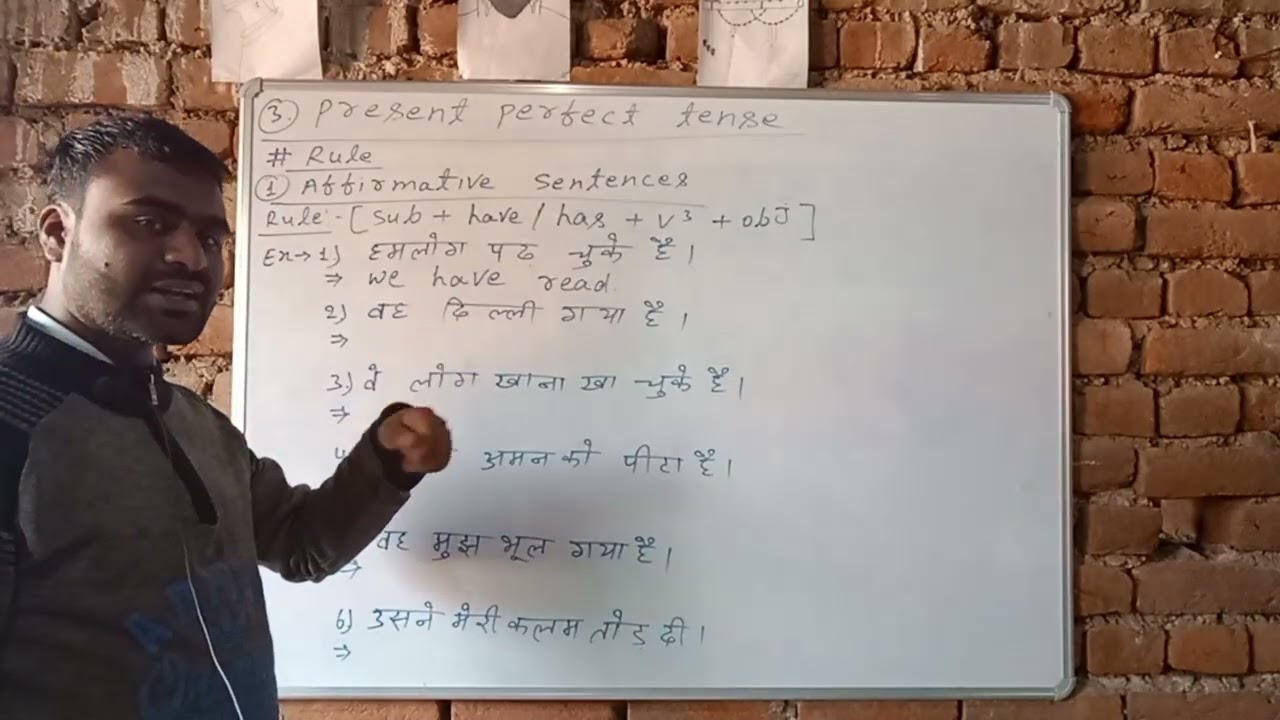 3. Present perfect tense
# Rule
1 Affirmative sentences
Rule:- [sub + have / has + v³ + obj]
Ex→ 1) हमलोग पढ चुके है।
⇒ we have read.
2) वह दिल्ली गया है।
⇒
3.) वे लोग खाना खा चुके है।
⇒
अमन को पीटा है।
वह मुझ भूल गया है।
⇒
6) उसने मेरी कलम तोड़ दी।
⇒